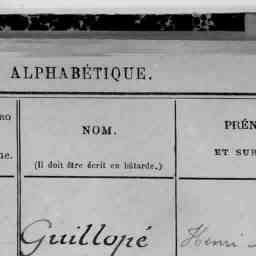 ALPHABÉTIQUE.
NOM.
PRÉN
ET SUR
(Il doit être écrit en bâtarde.)
Guillopé
Henri